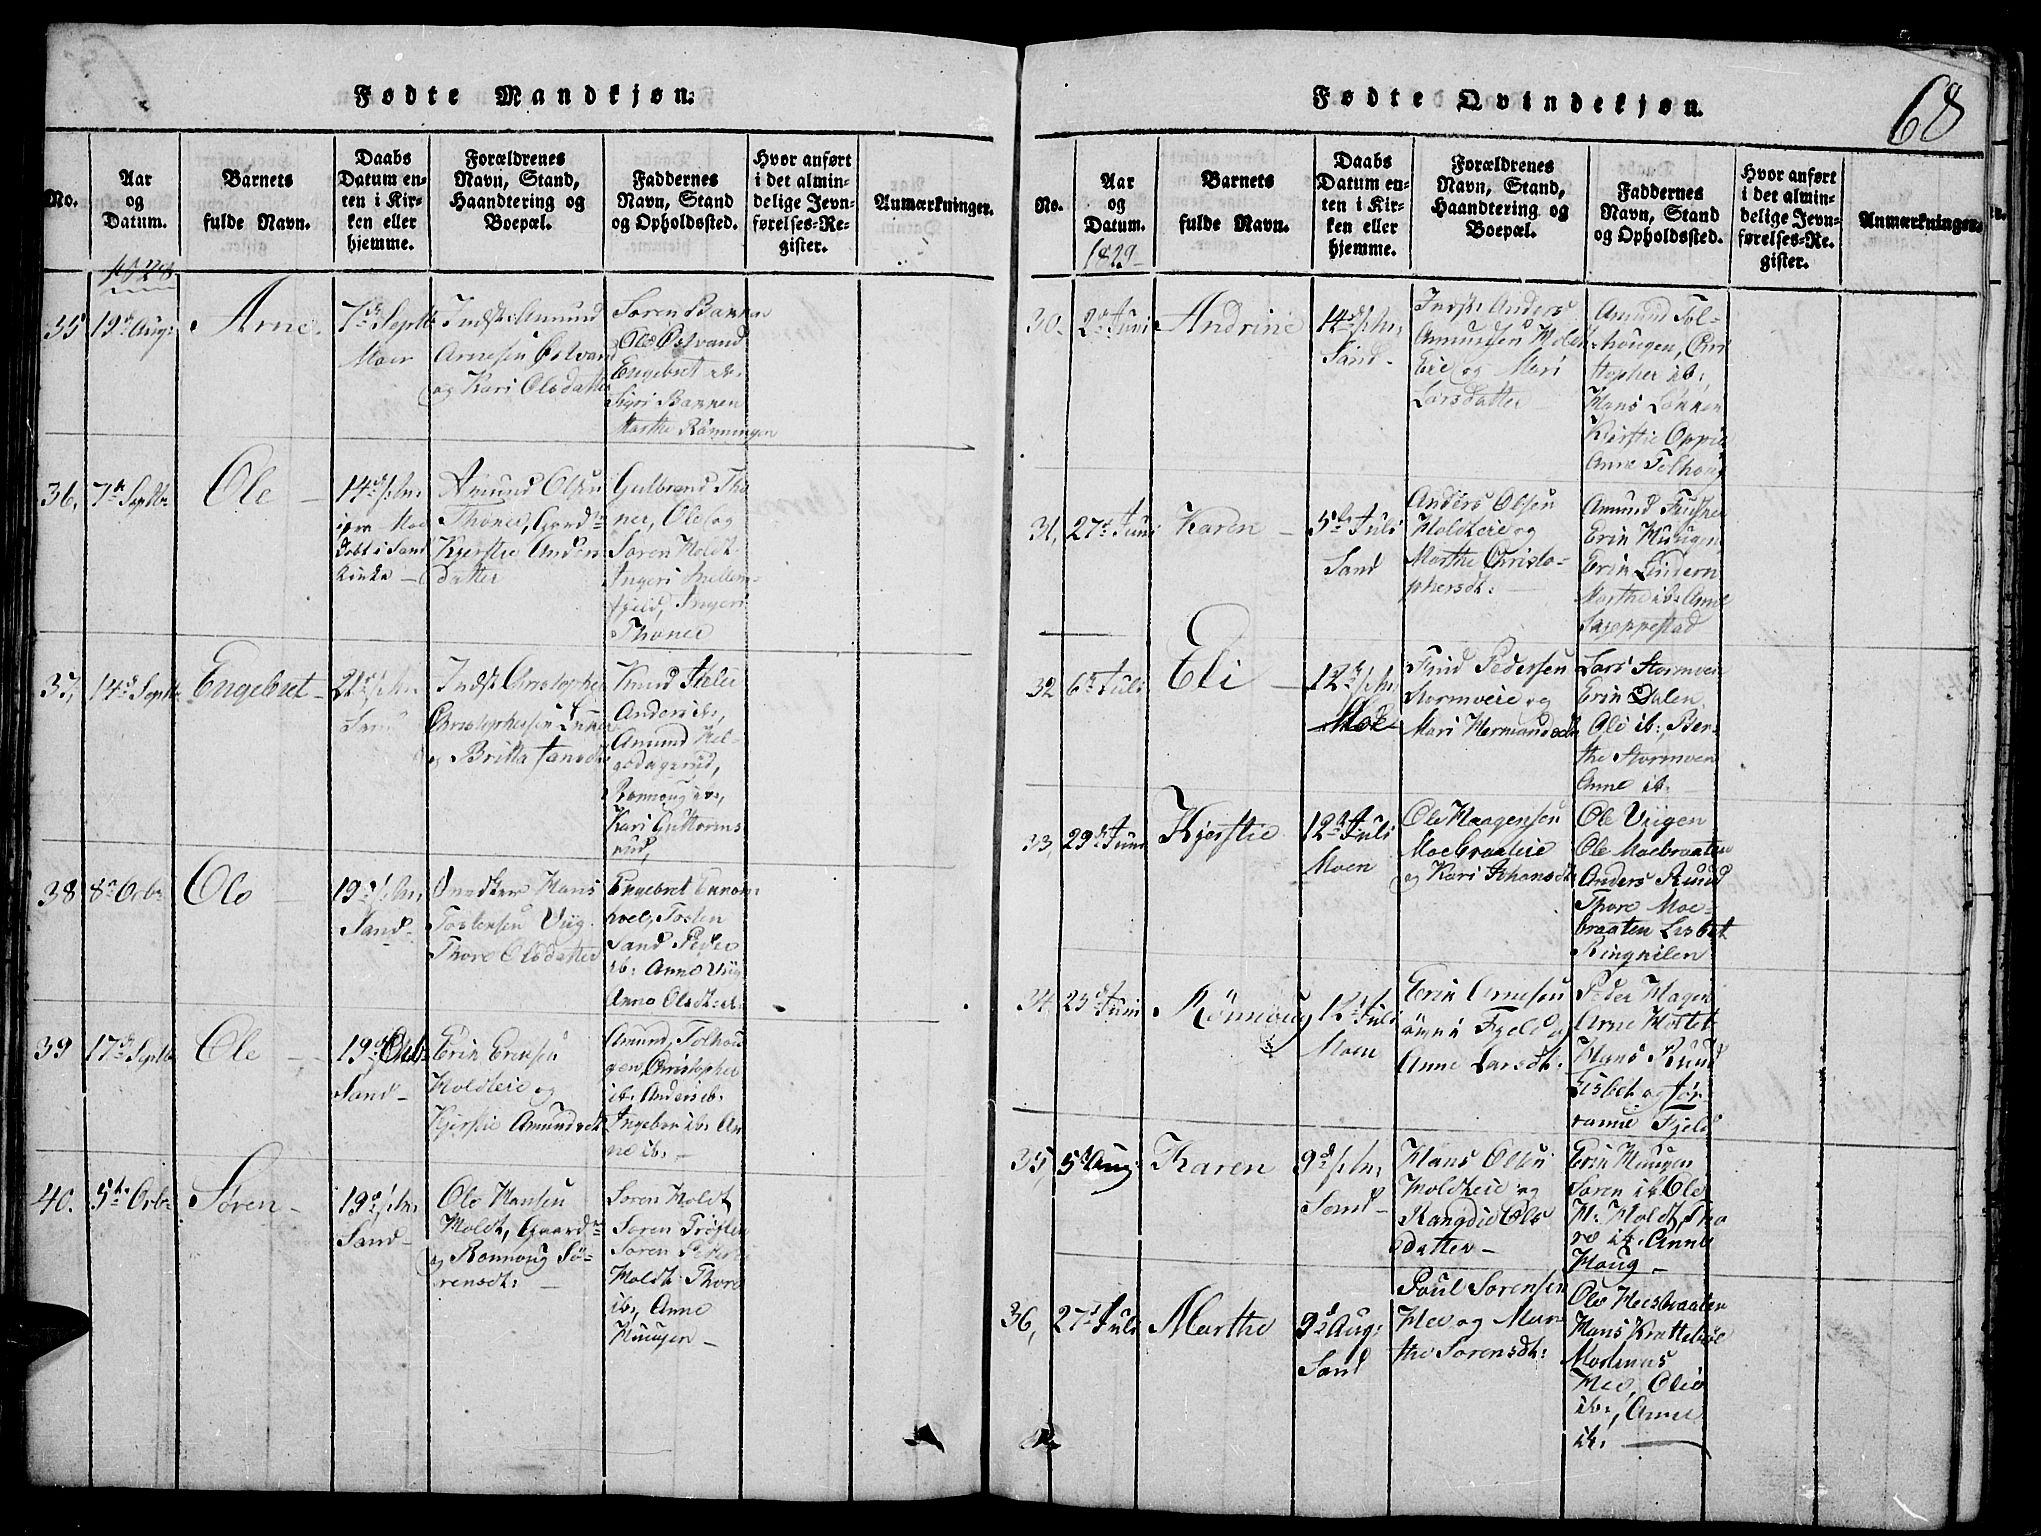 68
Fødte Mandkjøn.
No.
Aar
og
Datum.
Barnets
fulde Navn.
Daabs
Datum en-
ten i Kir-
ken eller
hjemme.
Forældrenes
Navn, Stand,
Haandtering og
Boepæl.
Faddernes
Navn, Stand
og Opholdssted.
Hvor anført
i det almin-
delige Jevn-
førelses-Re-
gister.
Anmærkninger.
1828
35
19d Aug:
Arne.
7d Septbr
Moen
Indst: Amund
Arnesen Østvand
og Kari Olsdatter
Søren Bakken
Ole Østvand
Engebret ib:
Sigri Bakken
Marthe Rønningen
36,
7d Septbr
Ole
14d
Døbt i Sand
Kirke
Amund Olsen
Thoner, Gaardm
Kjerstie Anders
datter
Gulbrand Tho
ner, Ole og
Søren Moldt
Ingeri Mellem-
fjeld, Ingeri
Thoner
37,
14d Septbr
Engebret
21d
Sand
Indst Christopher
Christophersen
og Britta Jansdt
Knud
Anders ib:,
Amund
Rønnoug ib:,
Kari Guttorms
rud,
38
8d Octbr
Ole
19d
Sand
Hans
Tostensen Viig
Thore Olsdatter
Engebret
Tosten
Sand Peder
ib: Anne Viig
Anne Olsdt: ib:
39
17d Septbr
Ole
19d Octbr
Sand
Erik Eriksen
Moldteie og
Kjerstie Amundsdt
Amund Tolhou
gen, Christopher
ib: Anders ib:
Ingebor ib: An
ne ib:
40.
5d Octbr
Søren
19d
Sand
Ole Hansen
Moldt, Gaardm
og Rønnoug Sø-
rensdt:
Søren Moldt
Søren Trøften
Søren Peders
Moldt Thore
ib:, Anne
Huugen
Fødte Qvindekjøn.
No.
Aar
og
Datum.
Barnets
fulde Navn.
Daabs
Datum en-
ten i Kir-
ken eller
hjemme.
Forældrenes
Navn, Stand,
Haandtering og
Boepæl.
Faddernes
Navn, Stand
og Opholdssted.
Hvor anført
i det almin-
delige Jevn-
førelses-Re-
gister.
Anmærkninger.
1829
30.
2d Juni
Andrine
14d
Sand
Indst: Anders
Amundsen Moldt
Eie og Mari
Larsdatter
Amund Tol-
hougen, Chri
stopher ib:,
Hans Løkken
Kjerstie Oppi
Anne Tolhoug
31,
27d Juni
Karen
5d Juli
Sand
Anders Olsen
Moldteie og
Marthe Christo-
phersdt:
Amund
Erik Huugen
Erik Lindern
Marthe ib: Anne
Skjeppestad
32
6d Juli
Eli
12d
Moe
Pedersen
Stormoeie og
Mari Hermandsdt
Lars Stormoen
Erik Dalen
Ole ib: Ber-
the Stormoen
Anne ib:
33,
29d Juni
Kjerstie
12d Juli
Moen
Ole Haagensen
Moebraateie
og Kari Johansdt:
Ole Viigen
Ole Moebraaten
Anders Ruud
Thore Moe-
braaten Lisbet
Ringnilen
34
25d Juni
Rønnoug
12d Juli
Moen
Erik Arnesen
Fjeld og
Anne Larsdt:
Peder Hagen
Arne
Hans Ruud
Lisbet og Jør-
ranne Fjeld
35,
5d Aug:
Karen
9d
Sand
Hans Olsen
Moldteie og
Rangdie Ols
datter
Erik Huugen
Søren ib: Ole
H: Moldt, Tho
re ib: Anne
Houg
36,
27d Juli
Marthe
9d Aug:
Sand
Poul Sørensen
Mee og Mar
the Sørensdt:
Ole Meebraaten
Hans
Mee, Olie
ib:, Anne
ib: